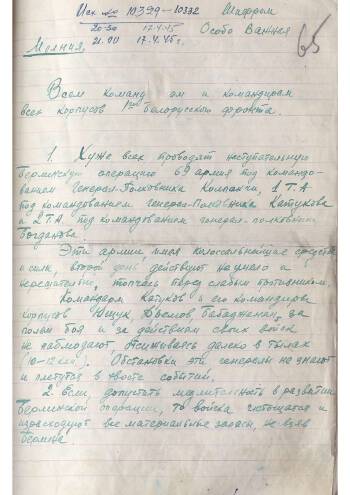 Исх № 10399-10332 Шифром
20-50 17.4.45
Особо Важная
Молния. 21.00 17.4.45г.
65
Всем команд ом и командирам
всех корпусов 1го Белорусского фронта.
1. Хуже всех проводят наступательную
Берлинскую операцию 69 армия под командо-
ванием генерал-полковника Колпакчи, 1.Т.А
под командованием генерал-полковника Катукова
и 2Т.А. под командованием генерал-полковника
Богданова.
Эти армии, имея колоссальнейшие средства
и силы, второй день действуют неумело и
нерешительно, топчась перед слабым противником.
Командарм Катуков и его командиры
корпусов Ющук, Дремов, Бабаджанян, за
полем боя и за действием своих войск
не наблюдают, отсиживаясь далеко в тылах
(10-12км). Обстановки эти генералы не знают
и плетутся в хвосте событий.
2. Если допустить медлительность в развитии
Берлинской операции, то войска истощатся и
израсходуют все материальные запасы, не взяв
Берлина.